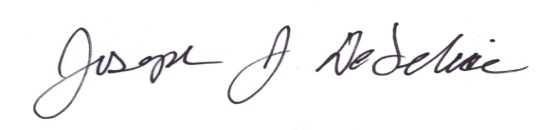 Joseph J DeFelice